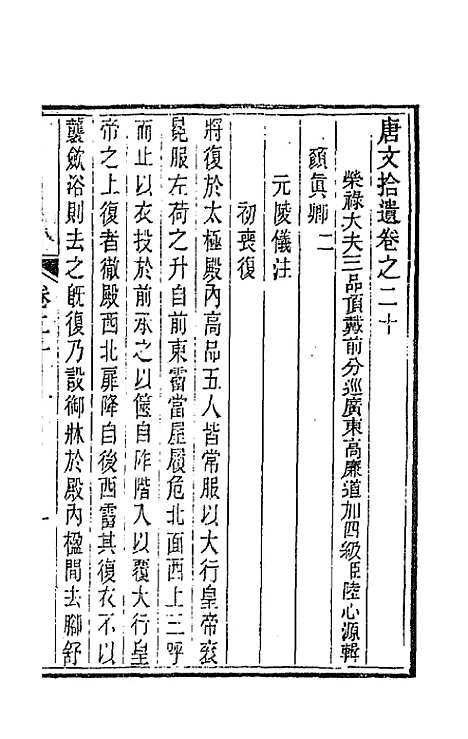 唐文拾遺卷之二十
榮祿大夫三品頂戴前分巡廣東高廉道加四級臣陸心源輯
顏眞卿二
元陵儀注
初喪復
將復於太極殿內高品五人皆常服以大行皇帝衮
冕服左荷之升自前東霤當屋履危北面西上三呼
而止以衣投於前承之以篋自阼階入以覆大行皇
帝之上復者徹殿西北厞降自後西霤其復衣不以
襲斂浴則去之既復乃設御牀於殿內楹間去腳舒